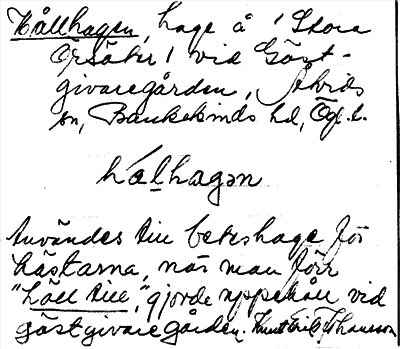 Hållhagen, hage å 'Stora
Örsäter' vid Gäst-
givaregården, Åtvids
sn, Bankekinds hd, Ög. l.
hålhagən
Användes till beteshage för
hästarna, när man förr
"höll till", gjorde uppehåll vid
gästgivaregården. Knut Erik Johansson